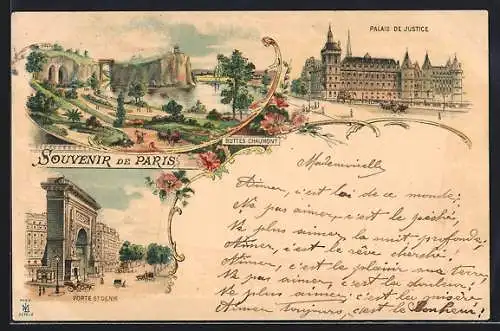 PALAIS DE JUSTICE
BUTTES CHAUMONT
SOUVENIR DE PARIS
PORTE ST DENIS
Mademoiselle
Aimer, c'est la loi de ce monde;
Ne pas aimer, c'est le péché,
Ne plus aimer la nuit profonde;
Aimer, c'est le rêve cherché!
Aimer, c'est le plaisir sur terre,
Ne pas aimer, c'est la douleur;
Ne plus aimer, c'est la misère
Aimer toujours, c'est le Bonheur!